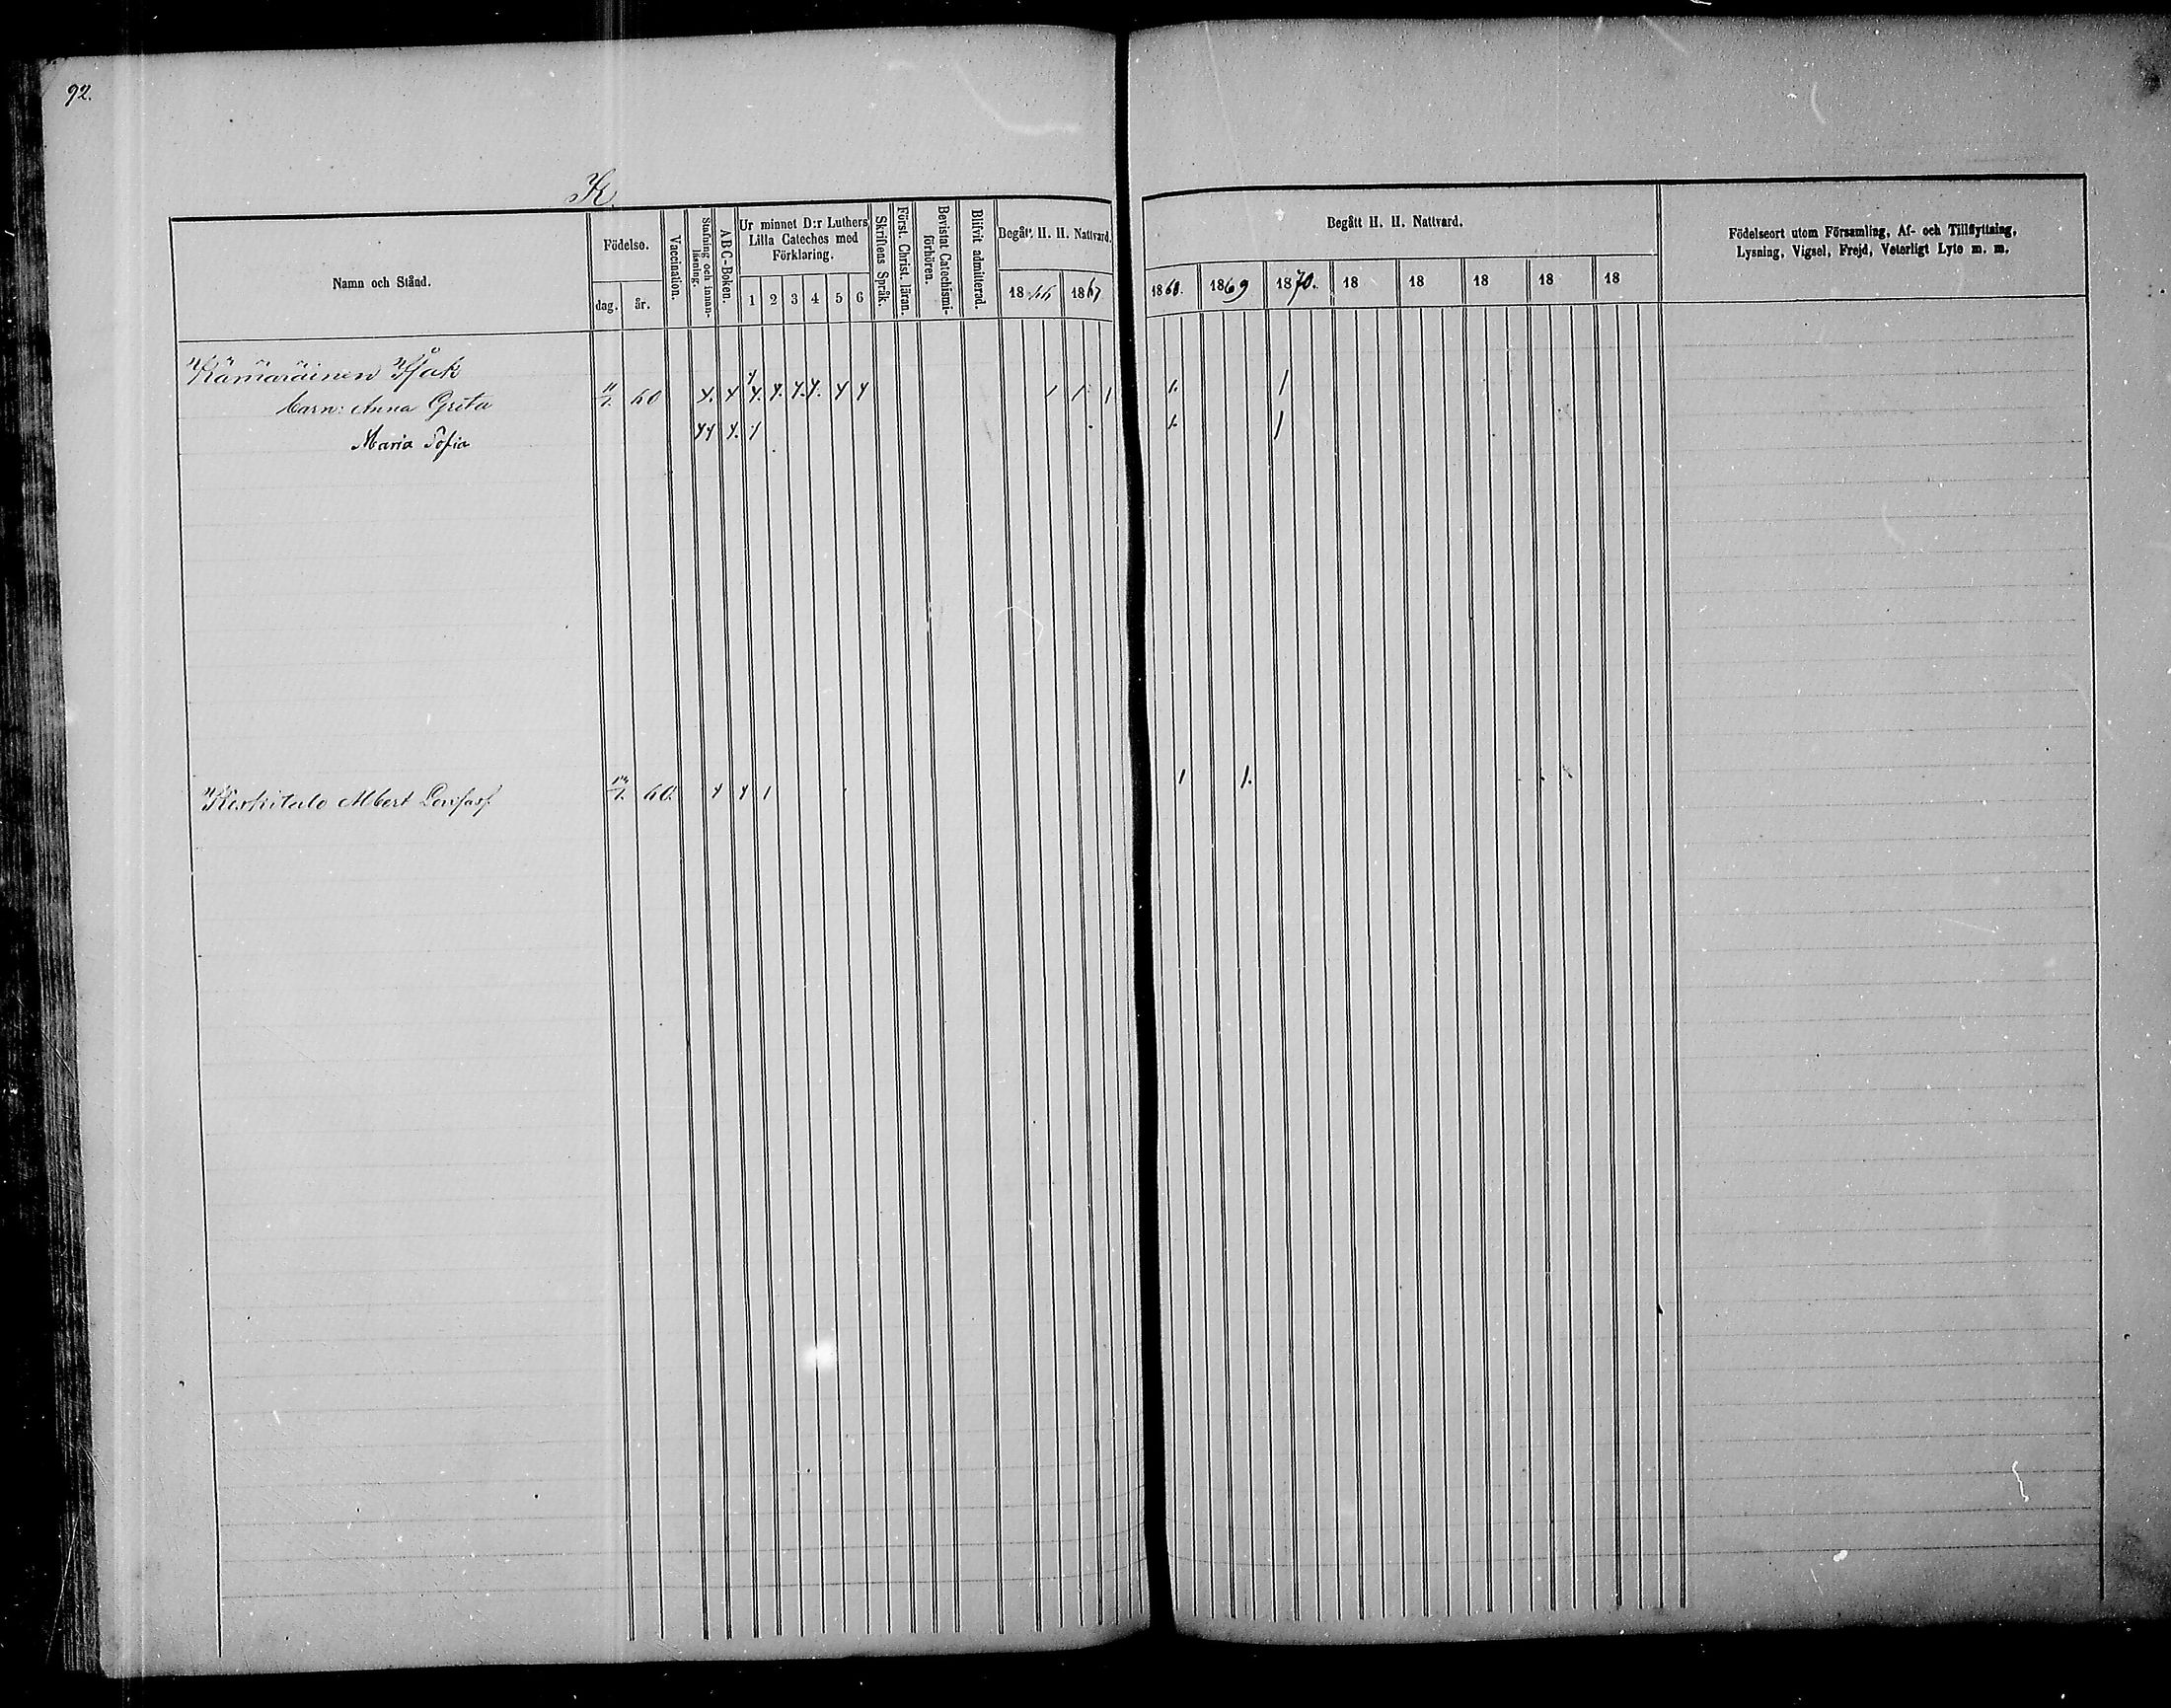 92.
K.
Namn och Stånd.
Födelse.
dag.
år.
Vaccination.
Stafning och innan-
läsning.
ABC-Boken.
Ur minnet D:r Luthers
Lilla Cateches med
Förklaring.
1 2 3 4 5 6
Skriftens Språk.
Först. Christ. läran.
Bevistat Catechismi-
förhören.
Blifvit admitterad.
Begått H. H. Nattvard.
1866 1867
Begått H. H. Nattvard.
1868. 1869 1870. 18 18 18 18 18
Födelseort utom Församling, Af- och Tillflyttning,
Lysning, Vigsel, Frejd, Veterligt Lyte m. m.
Kämäräinen Isak
barn: Anna Greta 60 1 1 1 1. 1
Maria Sofia 1. 1
Keskitalo Albert 60. 1 1 1.